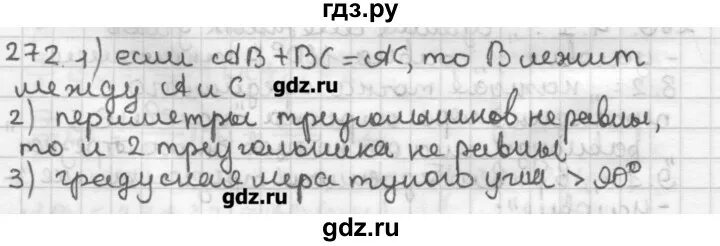 гдз.ру
272. 1) если AB + BC = AC, то B лежит
между A и C gdz.ru
2) периметры треугольников не равны,
то и 2 треугольника не равны
3) градусная мера тупого угла > 90°
gdz.ru
gdz.ru